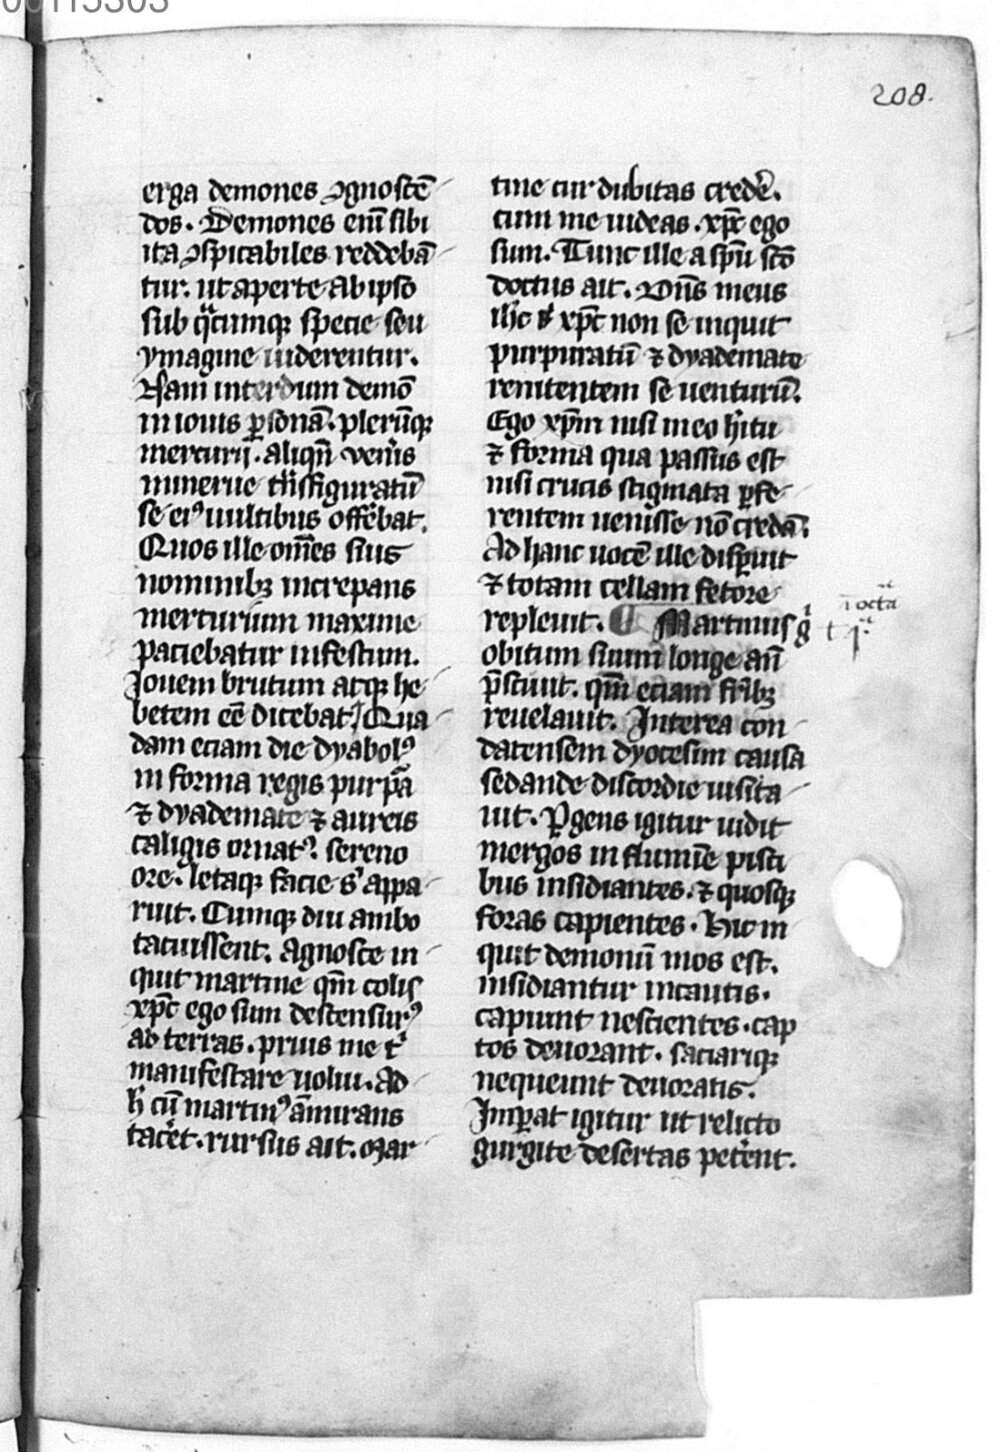 00115303
208.
erga demones ꝯgnoscē
dos. Demones enī sibi
ita ꝯspicabiles reddebā
tur. ut aperte ab ipso
sub q̄cumqꝫ specie seu
ymagine uiderentur.
Nam interdum demō
in iouis ꝑsonā. plerūqꝫ
mercurii. aliqn̄ ven̄is
minerue tn̄sfiguratū
se eiꝰ uultibus offe᷑bat.
Quos ille om̄es suis
nominibꝫ increpans
mercurium maxime
paciebatur infestum.
Jouem brutum atqꝫ he
betem eē dicebat. Qua
dam eciam die dyabolꝰ
in forma regis purpᷓa
⁊ dyademate ⁊ aureis
caligis ornatꝰ. sereno
ore. letaqꝫ facie s᷑ appa
ruit. Cumqꝫ diu ambo
tacuissent. Agnosce in
quit martine qm̄ colis
xp̄c ego sum descensurꝰ
ad terras. prius me t
manifestare uolui. Ad
h̄ cū martinꝰ am̄irans
tace᷑t. rursus ait. Mar
tine cur dubitas crede᷑.
cum me uideas. xp̄c ego
sum. Tunc ille a sp̄u sc̄o
doctus ait. Dn̄s meus
ih̄c xp̄c non se inquit
purpuratū ⁊ dyademate
renitentem se uenturū.
Ego xp̄m nisi in eo h̄itu
⁊ forma qua passus est
nisi crucis stigmata ꝑfe
rentem uenisse nō credā.
Ad hanc uocē ille disꝑuit
⁊ totam cellam fetore
repleuit. Martinus
obitum suum longe an̄
p̄sciuit. qm̄ eciam fr̄ibꝫ
reuelauit. Interea con
datensem dyocesim causa
sedande discordie uisita
uit. Ꝑgens igitur uidit
mergos in flumīe pisci
bus insidiantes. ⁊ quosqꝫ
foras capientes. Hic in
quit demonū mos est.
insidiantur incautis.
capiunt nescientes. cap
tos deuorant. saciariqꝫ
nequeunt deuoratis.
Imꝑat igitur ut relicto
gurgite desertas pete᷑nt.